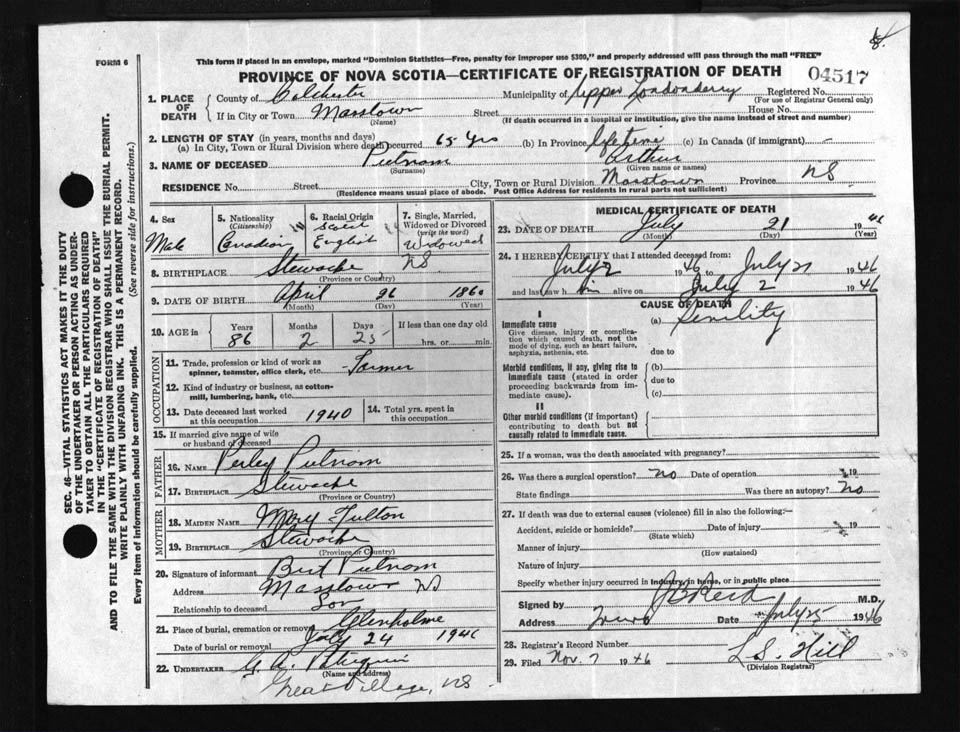 FORM 6
This form if placed in an envelope, marked "Dominion Statistics—Free, penalty for improper use $300," and properly addressed will pass through the mail "FREE"
PROVINCE OF NOVA SCOTIA—CERTIFICATE OF REGISTRATION OF DEATH
04517
1. PLACE OF DEATH
County of Colchester Municipality of Upper Londonderry Registered No.
(For use of Registrar General only)
If in City or Town Masstown Street House No.
(Name) (If death occurred in a hospital or institution, give the name instead of street and number)
2. LENGTH OF STAY (in years, months and days)
(a) In City, Town or Rural Division where death occurred 65 yrs (b) In Province lifetime (c) In Canada (if immigrant) -
3. NAME OF DECEASED Putnam Arthur
(Surname) (Given name or names)
RESIDENCE No. Street City, Town or Rural Division Masstown Province NS
(Residence means usual place of abode. Post Office Address for residents in rural parts not sufficient)
4. Sex
Male
5. Nationality (Citizenship)
Canadian
6. Racial Origin
English
7. Single, Married, Widowed or Divorced (write the word)
Widowed
8. BIRTHPLACE Stewacke NS
(Province or Country)
9. DATE OF BIRTH April 26 1860
(Month) (Day) (Year)
10. AGE in Years Months Days If less than one day old
86 2 25 hrs. or min.
OCCUPATION
11. Trade, profession or kind of work as spinner, teamster, office clerk, etc. Farmer
12. Kind of industry or business, as cotton-mill, lumbering, bank, etc.
13. Date deceased last worked at this occupation 1940
14. Total yrs. spent in this occupation
15. If married give name of wife or husband of deceased
FATHER
16. NAME Perley Putnam
17. BIRTHPLACE Stewacke
(Province or Country)
MOTHER
18. MAIDEN NAME Mary Fulton
19. BIRTHPLACE Stewacke
(Province or Country)
20. Signature of informant Burt Putnam
Address Masstown NS
Relationship to deceased Son
21. Place of burial, cremation or removal Glenholme
Date of burial or removal July 24 1946
22. UNDERTAKER G.A.
(Name and address)
Great Village, NS
MEDICAL CERTIFICATE OF DEATH
23. DATE OF DEATH July 21 1946
(Month) (Day) (Year)
24. I HEREBY CERTIFY that I attended deceased from:
July 2 1946 to July 21 1946
and last saw him alive on July 2 1946
CAUSE OF DEATH
I
Immediate cause
Give disease, injury or complication which caused death, not the mode of dying, such as heart failure, asphyxia, asthenia, etc.
(a) Senility
due to
Morbid conditions, if any, giving rise to immediate cause (stated in order proceeding backwards from immediate cause).
(b)
due to
(c)
II
Other morbid conditions (if important) contributing to death but not causally related to immediate cause.
25. If a woman, was the death associated with pregnancy?
26. Was there a surgical operation? no Date of operation 19
State findings Was there an autopsy? no
27. If death was due to external causes (violence) fill in also the following:—
Accident, suicide or homicide? Date of injury 19
(State which)
Manner of injury
(How sustained)
Nature of injury
Specify whether injury occurred in industry, in home, or in public place
Signed by M.D.
Address Truro Date July 25 1946
28. Registrar's Record Number
29. Filed Nov. 7 1946 L.S. Hill
(Division Registrar)
SEC. 46—VITAL STATISTICS ACT MAKES IT THE DUTY
OF THE UNDERTAKER OR PERSON ACTING AS UNDER-
TAKER TO OBTAIN ALL THE PARTICULARS REQUIRED
IN THE "CERTIFICATE OF REGISTRATION OF DEATH"
AND TO FILE THE SAME WITH THE DIVISION REGISTRAR WHO SHALL ISSUE THE BURIAL PERMIT.
WRITE PLAINLY WITH UNFADING INK. THIS IS A PERMANENT RECORD.
Every item of information should be carefully supplied. (See reverse side for instructions.)